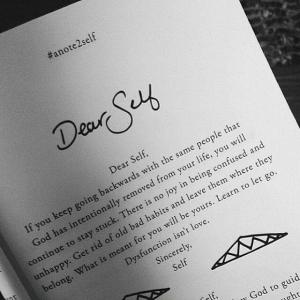 #anote2self
Dear Self
Dear Self,
If you keep going backwards with the same people that
God has intentionally removed from your life, you will
continue to stay stuck. There is no joy in being confused and
unhappy. Get rid of old bad habits and leave them where they
belong. What is meant for you will be yours. Learn to let go.
Dysfunction isn't love.
Sincerely,
Self
God to guid